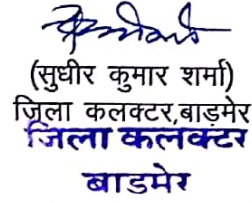 (सुधीर कुमार शर्मा)
ज़िला कलक्टर,बाड़मेर
जिला कलक्टर
बाडमेर